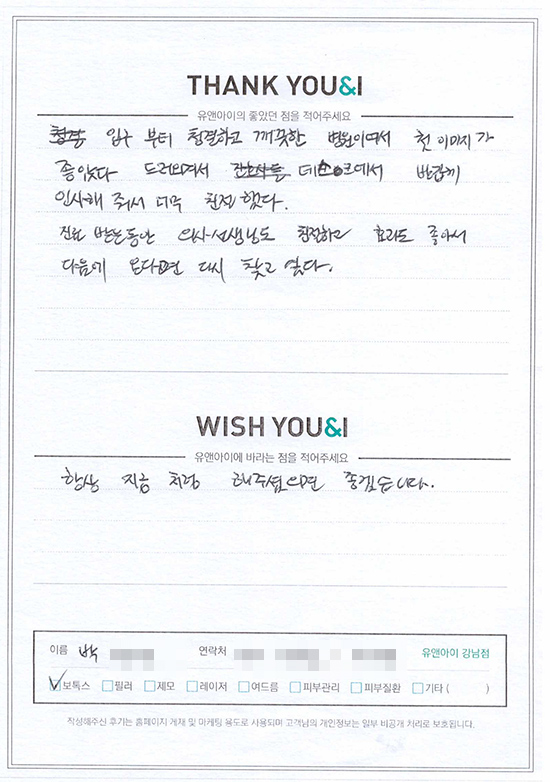 THANK YOU&I
유앤아이의 좋았던 점을 적어주세요
입구 부터 청결하고 깨끗한 병원이여서 첫 이미지가
좋았다 드러의겨서 데스크에서 반갑게
인사해 줘서 너무 친절 했다.
진료 받는동안 의사선생님도 친절하고 효과도 좋아서
다음에 온다면 다시 찾고 싶다.
WISH YOU&I
유앤아이에 바라는 점을 적어주세요
항상 지금 처럼 해주셨으면 좋겠습니다.
이름 백 연락처 유앤아이 강남점
보톡스 필러 제모 레이저 여드름 피부관리 피부질환 기타 ( )
작성해주신 후기는 홈페이지 게재 및 마케팅 용도로 사용되며 고객님의 개인정보는 일부 비공개 처리로 보호됩니다.